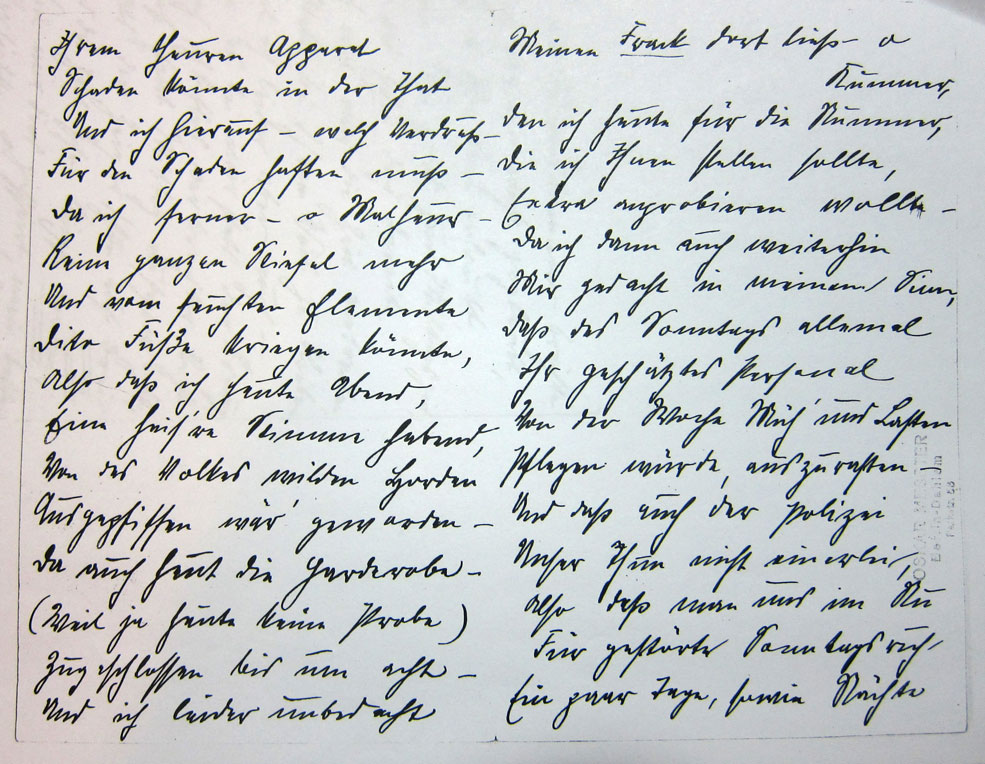 Ihrem theuren Apparat
Schaden könnte in der That
Und ich hierauf – welch Verdruß –
Für den Schaden haften muß –
Da ich ferner – o Malheur –
Keine ganzen Stiefel mehr
Und vom feuchten Elemente
dito Füße kriegen könnte,
Also daß ich heute Abend,
Eine heis're Stimme habend,
Von des Volkes wilden Horden
Ausgepfiffen wär' geworden –
Da auch heut die Garderobe –
(Weil ja heute keine Probe)
Zugeschlossen bis um acht –
Und ich leider unbedacht
Meinen Frack dort ließ – o
Kummer,
den ich heute für die Nummer,
Die ich Ihnen stellen sollte,
Extra anprobieren wollte –
Da ich dann auch weiterhin
Mir gedacht in meinem Sinn,
daß des Sonntags allemal
Ihr geschätztes Personal
Von der Woche Müh' und Lasten
Pflegen würde, auszurasten
Und daß auch der Polizei
Unser Thun nicht einerlei,
Also daß man uns im Nu
Für gestörte Sonntagsruh'
Ein paar Tage, sowie Nächte
OSKAR MESSTER